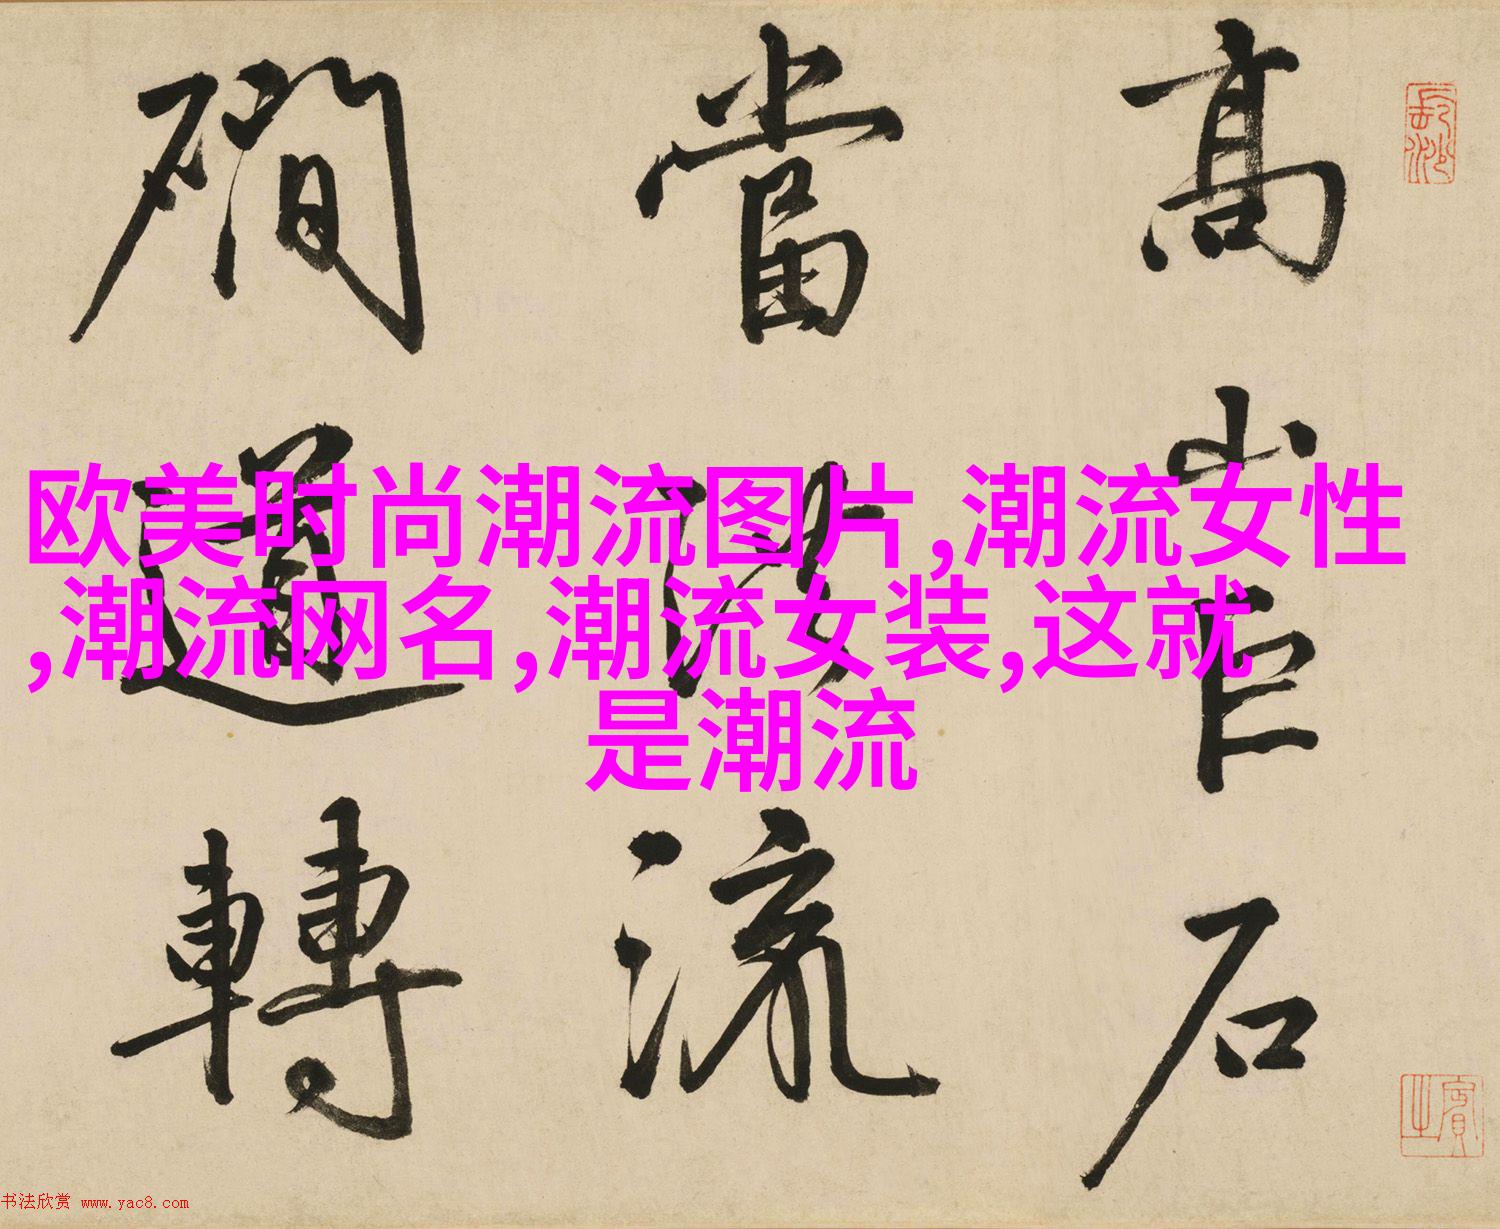 高山巨石
當流
磵道轉
欧美时尚潮流图片,潮流女性
,潮流网名,潮流女装,这就
是潮流
長沙
賓之
书法欣赏 www.yac8.com